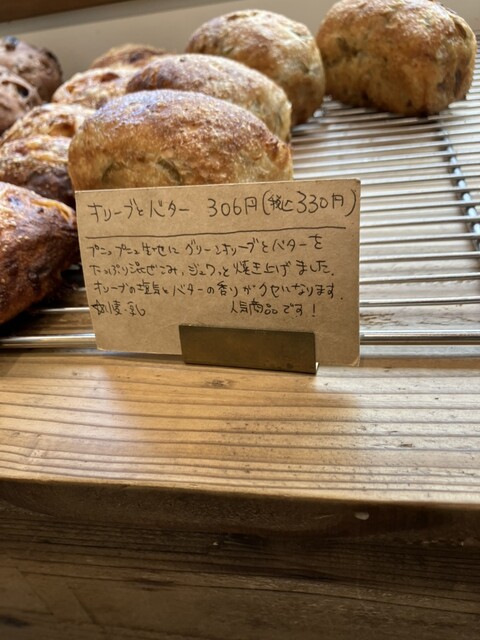 オリーブとバター 306円(税込330円)
プニュプニュ生地に グリーンオリーブとバターを
たっぷり混ぜこみ、ジュワっと焼き上げました。
オリーブの塩気とバターの香りがクセになります。
小麦・乳 人気商品です!